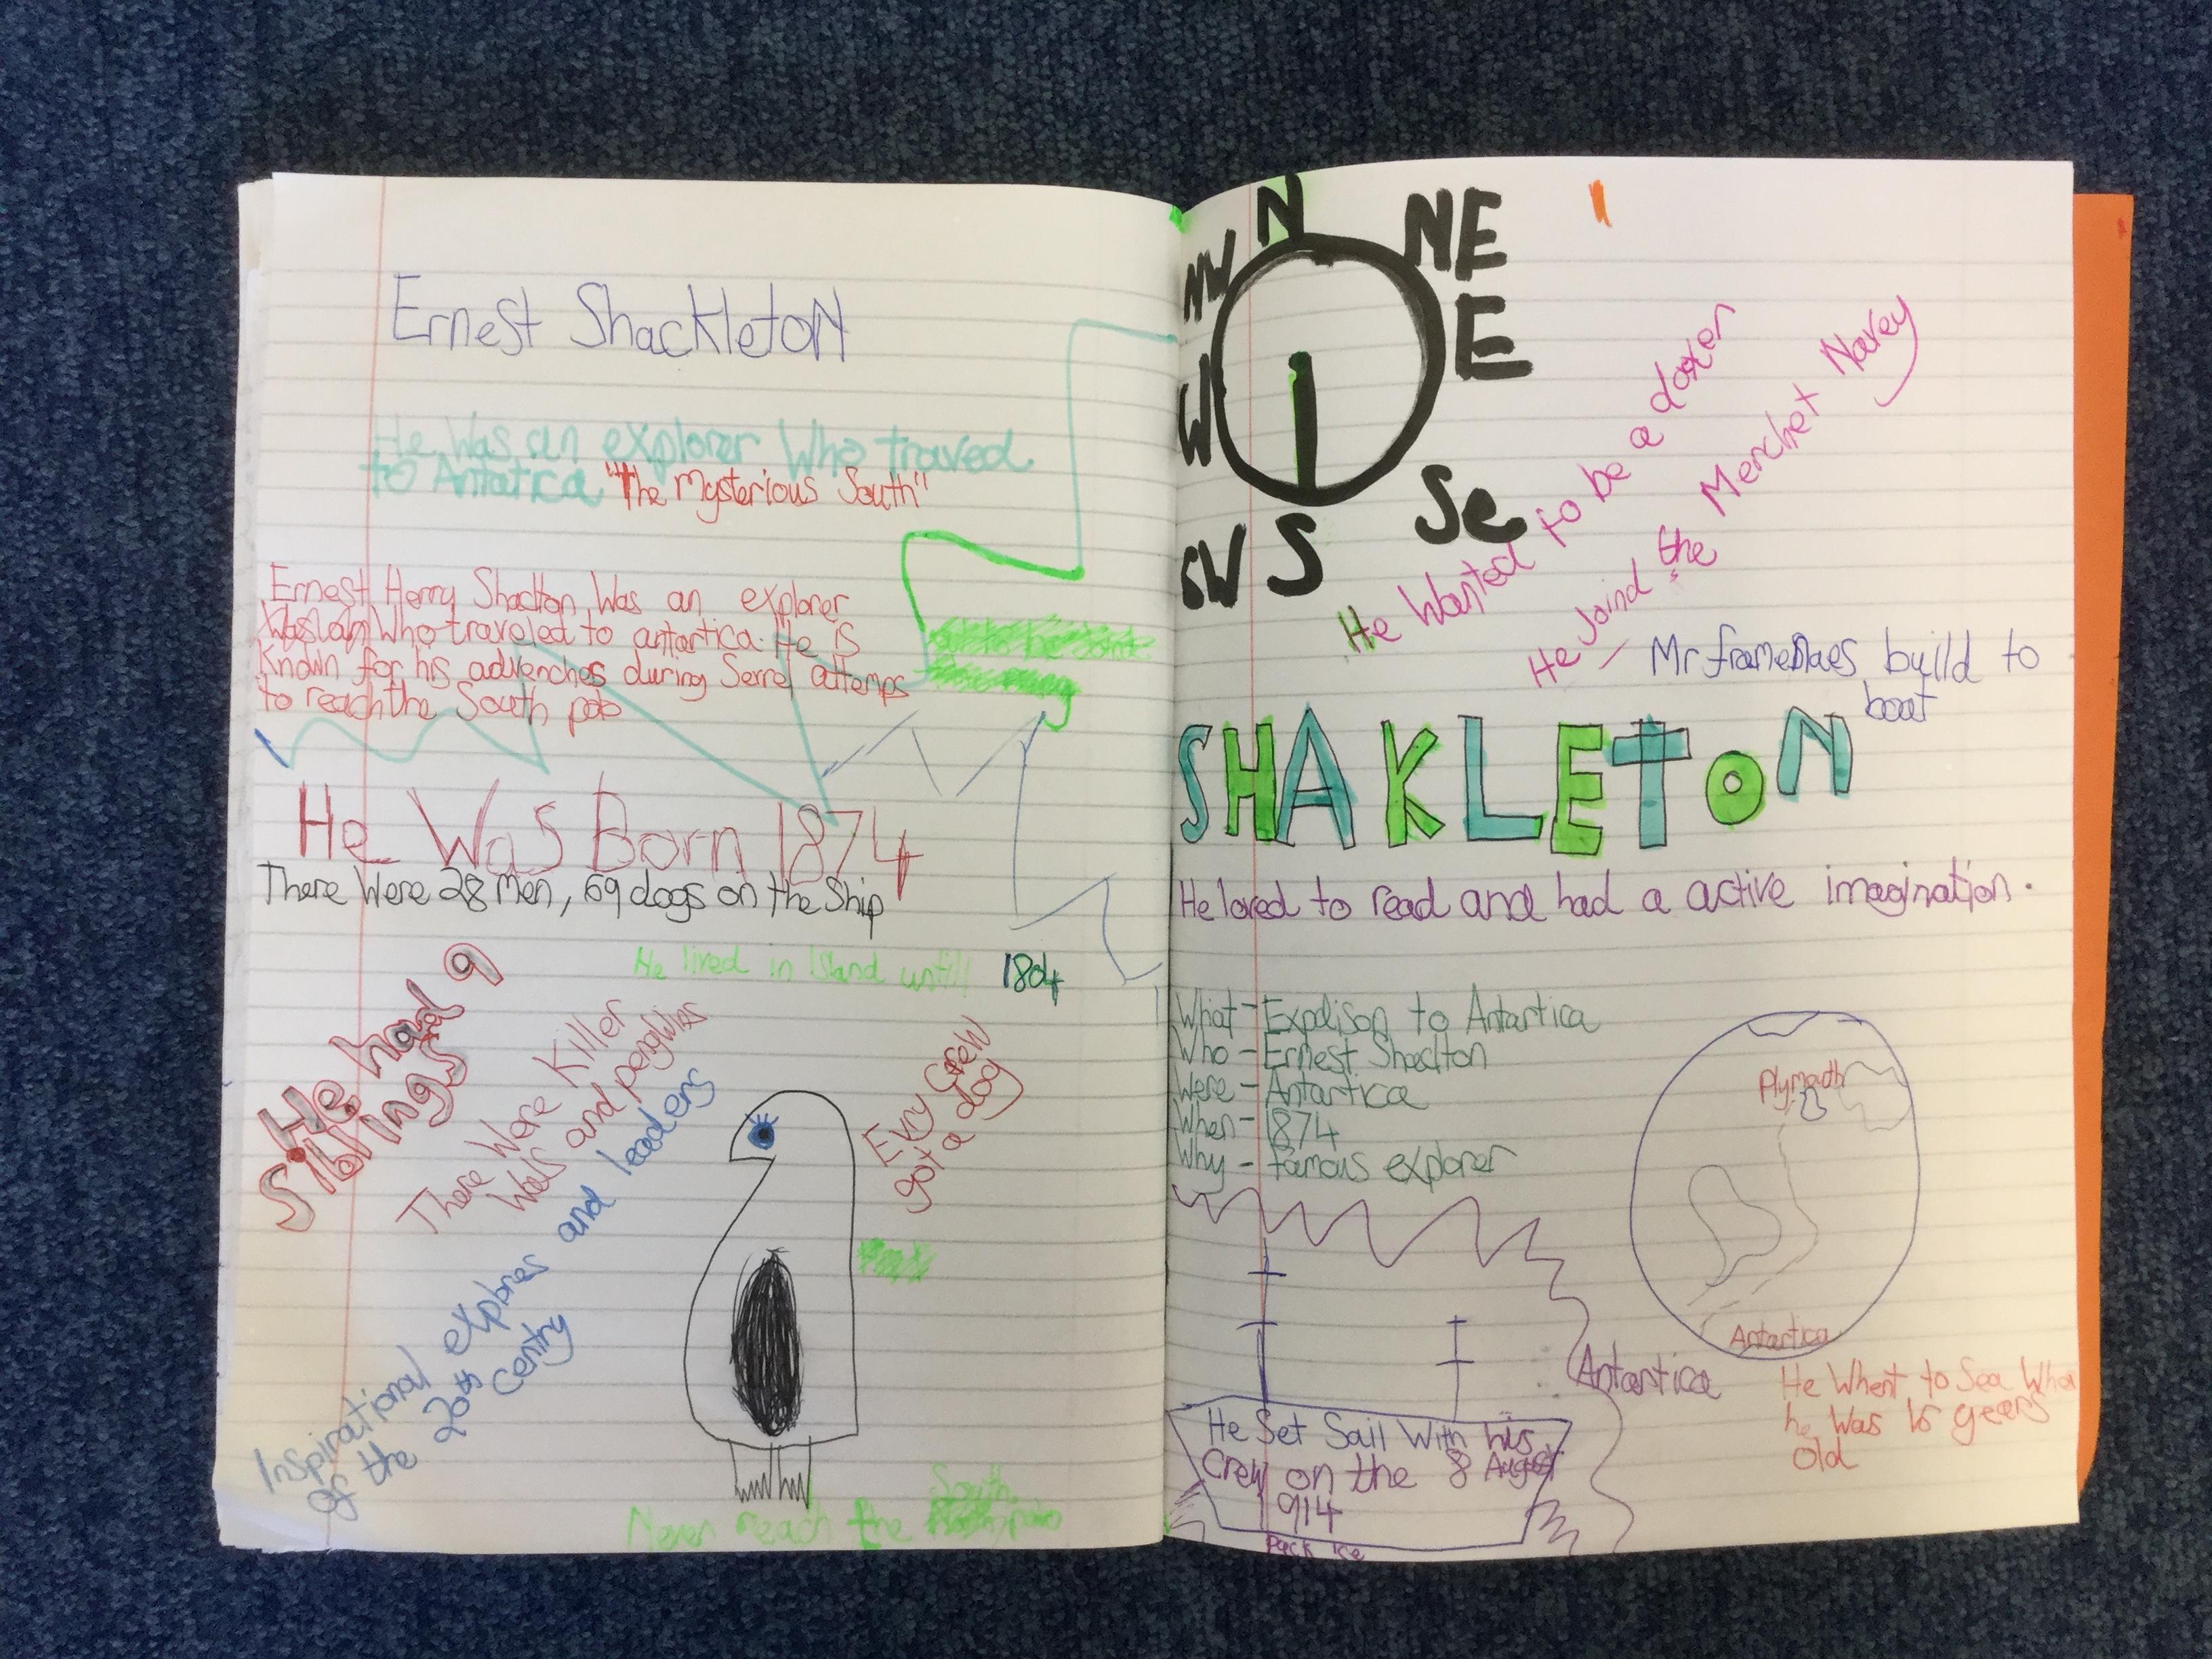 Ernest Shackleton
He Was an explorer Who traved
to Antatica "The Mysterious South"
Ernest Henry Shaclton Was an explorer
Who traveled to antartica. He is
Known for his advenches during Serrel attemps
to reach the South pob
He Was Born 1874
There Were 28 Men, 69 dogs on the Ship
He lived in Island untill 1804
He had 9
Siblings
There Were Killer
Wals and penguins
Inspirational explores and leaders
of the 20th centry
Evry Crew
got a dog
Never reach the South
N
NE
E
Se
S
SW
W
NW
He Wanted to be a doxer
He Joind the Merchet Navey
Mr build to
boat
SHAKLETON
He loved to read and had a active imagination.
What - Expdison to Antartica
Who - Ernest Shaclton
Were - Antartica
When - 1874
Why - famous explorer
Plymouth
Antartica
Antartica
He Whent to Sea When
he Was 16 years
old
He Set Sail With his
Crew on the 8 August
914
Pack ice